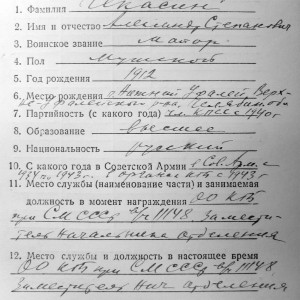 1. Фамилия Ипасин
2. Имя и отчество Александр Степанович
3. Воинское звание Майор
4. Пол Мужской
5. Год рождения 1912
6. Место рождения Нижний Уфалей, Верх-
не-Уфалейского р-на, Челяб.
7. Партийность (с какого года) Чл. КПСС с 1940г.
8. Образование высшее
9. Национальность русский
10. С какого года в Советской Армии в Св. Ам. с
по 1943 г. в органах КГБ с 1943 г.
11. Место службы (наименование части) и занимаемая
должность в момент награждения ОО КГБ
при СМ СССР в/ч 11148, Замести-
теля начальника отделения
12. Место службы и должность в настоящее время
ОО КГБ при СМ СССР в/ч 11148,
Заместителя Нач. отделения